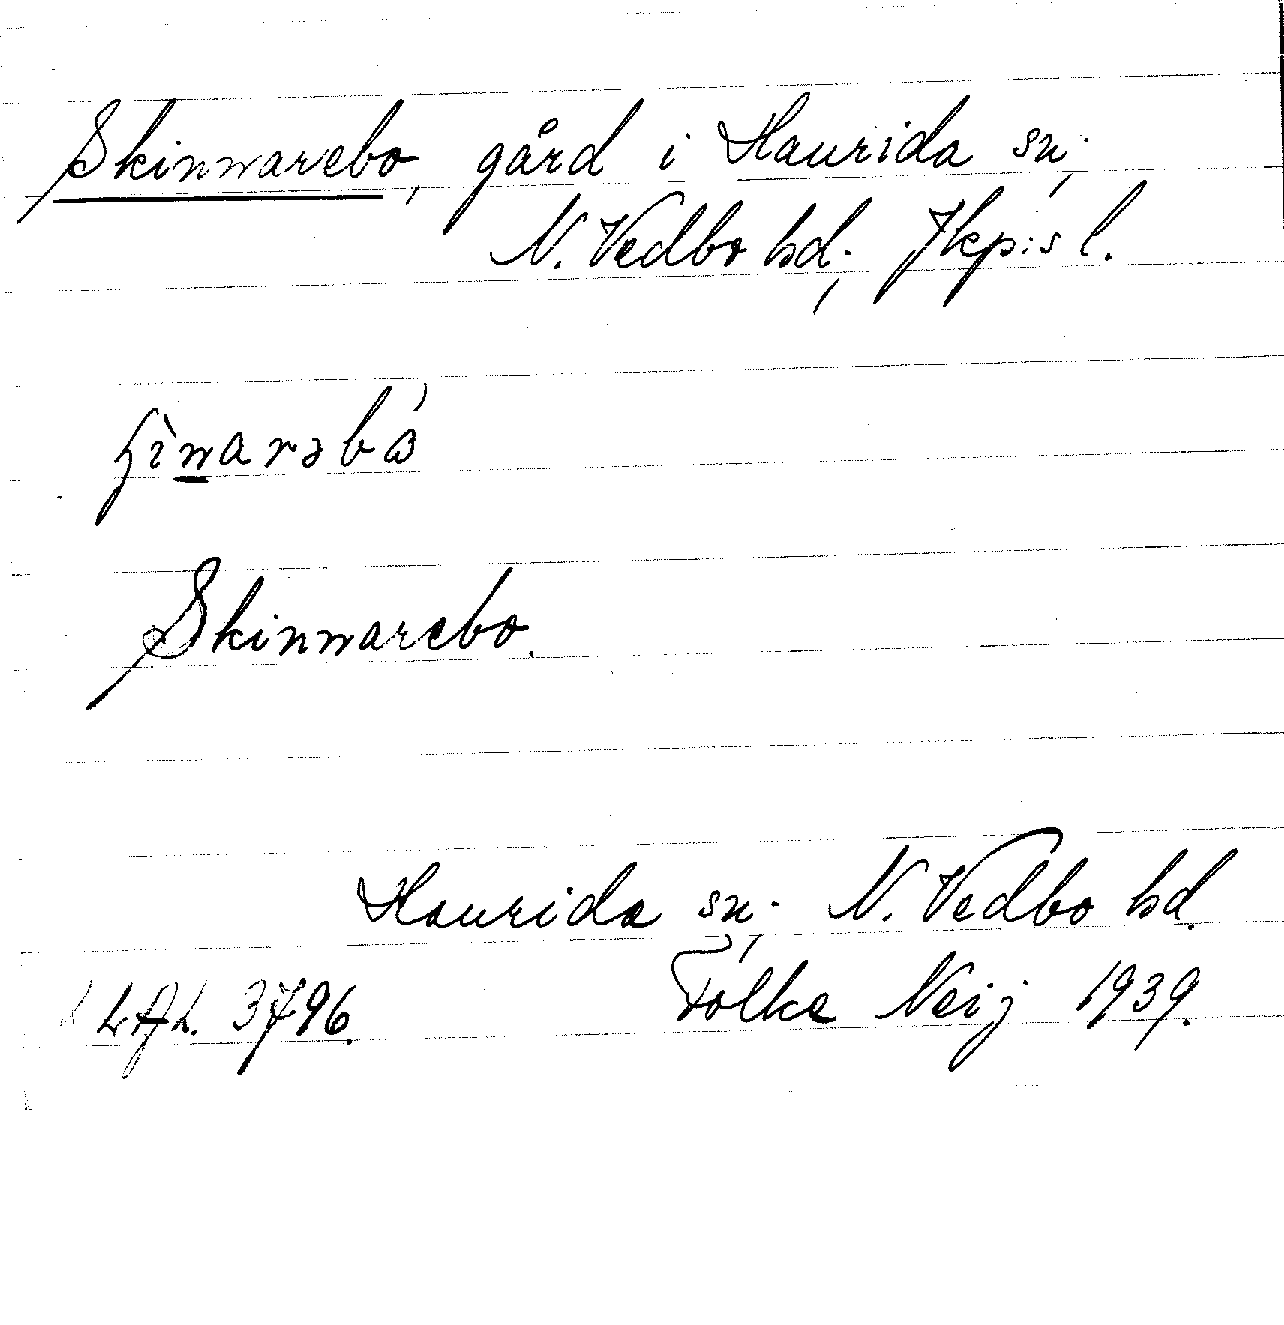 Skinnarebo, gård i Haurida sn;
N. Vedbo hd; Jkp:s l.
Skinnarebo.
Haurida sn; N. Vedbo hd.
Folke Neij 1939.
LAL. 3796.